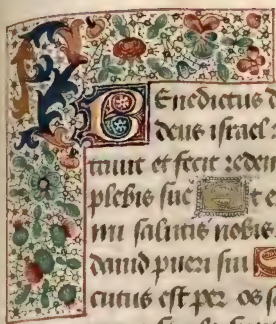 Benedictus d
deus israel
tauit et fecit redem
plebis sue et e
nu salutis nobis
dauid pueri sui
cutus est per os s